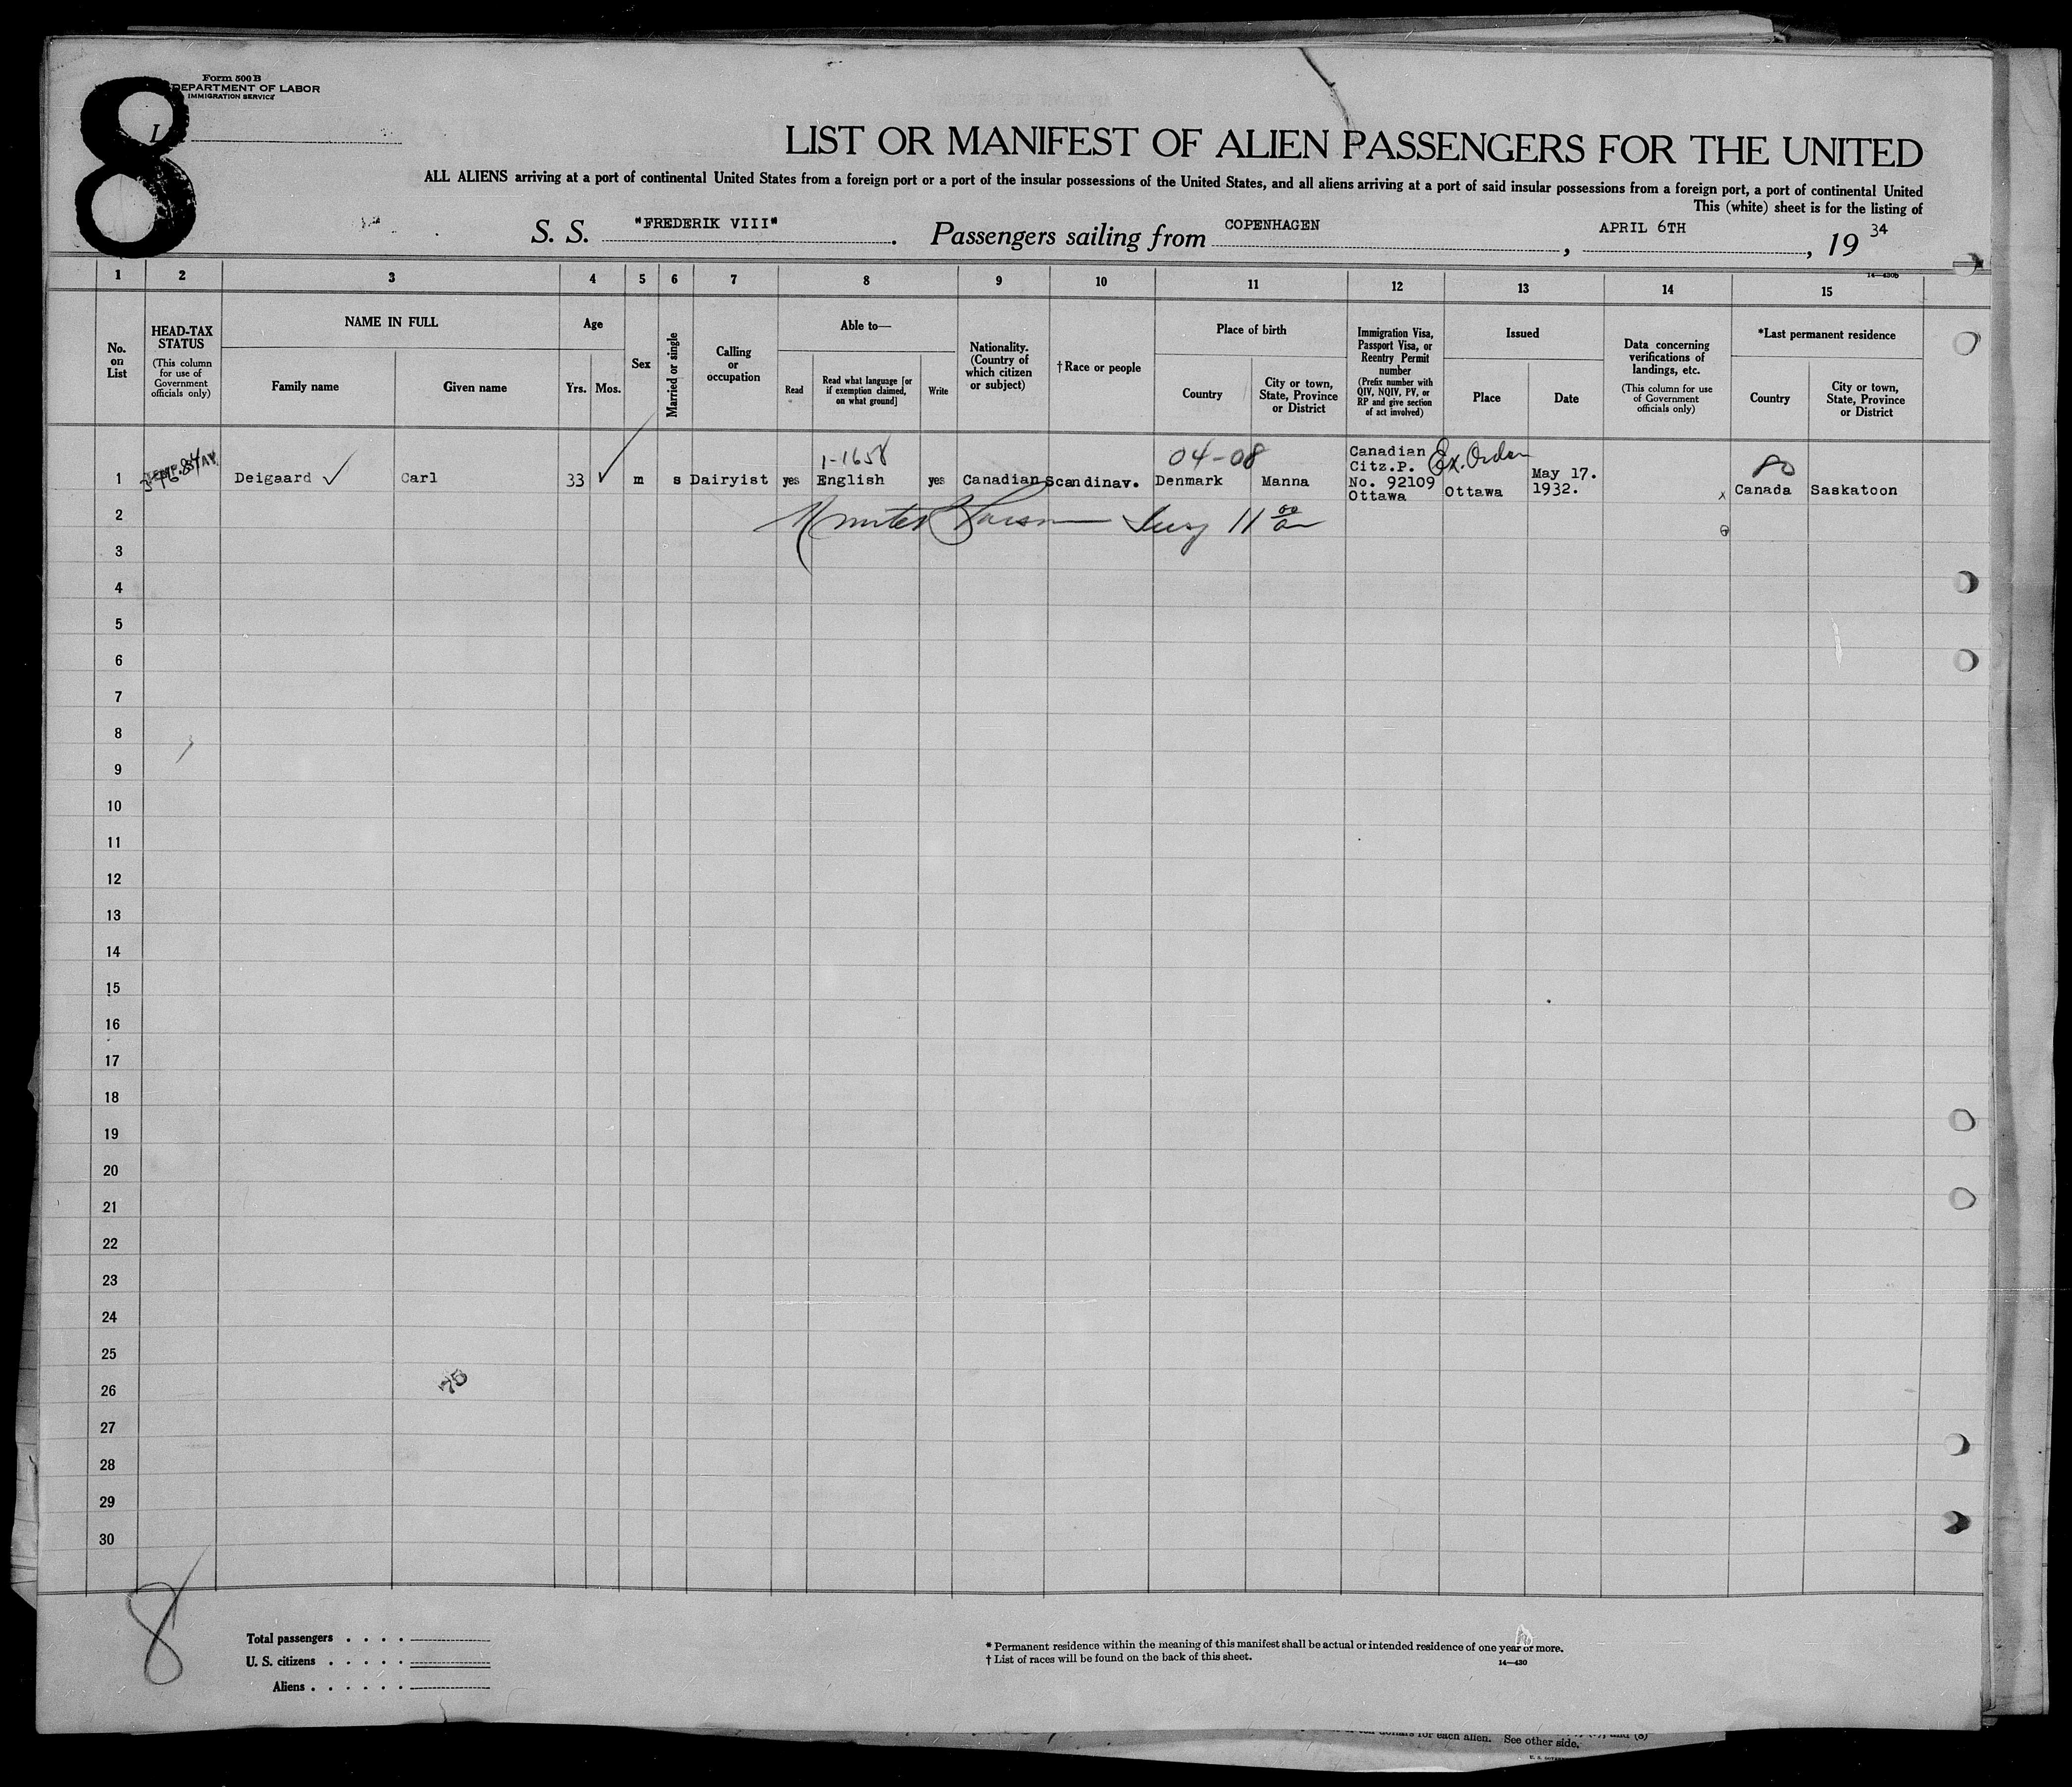 8
Form 500 B
DEPARTMENT OF LABOR
IMMIGRATION SERVICE
LIST OR MANIFEST OF ALIEN PASSENGERS FOR THE UNITED
ALL ALIENS arriving at a port of continental United States from a foreign port or a port of the insular possessions of the United States, and all aliens arriving at a port of said insular possessions from a foreign port, a port of continental United
This (white) sheet is for the listing of
S. S. "FREDERIK VIII". Passengers sailing from COPENHAGEN, APRIL 6TH, 19 34
14—430b
1 2 3 4 5 6 7 8 9 10 11 12 13 14 15
No. on List
HEAD-TAX STATUS
(This column for use of Government officials only)
NAME IN FULL
Family name
Given name
Age
Yrs. Mos.
Sex
Married or single
Calling or occupation
Able to—
Read
Read what language [or if exemption claimed, on what ground]
Write
Nationality. (Country of which citizen or subject)
† Race or people
Place of birth
Country
City or town, State, Province or District
Immigration Visa, Passport Visa, or Reentry Permit number
(Prefix number with QIV, NQIV, PV, or RP and give section of act involved)
Issued
Place
Date
Data concerning verifications of landings, etc.
(This column for use of Government officials only)
*Last permanent residence
Country
City or town, State, Province or District
1-1658
04-08
Ex. Order
80
1 Deigaard Carl 33 m s Dairyist yes English yes Canadian Scandinav. Denmark Manna Canadian Citz.P. No. 92109 Ottawa Ottawa May 17. 1932. x Canada Saskatoon
2
11 00
3
4
5
6
7
8
9
10
11
12
13
14
15
16
17
18
19
20
21
22
23
24
25
26
27
28
29
30
8
Total passengers . . . .
U. S. citizens . . . . .
Aliens . . . . . .
* Permanent residence within the meaning of this manifest shall be actual or intended residence of one year or more.
† List of races will be found on the back of this sheet.
14—430
for each alien. See other side.